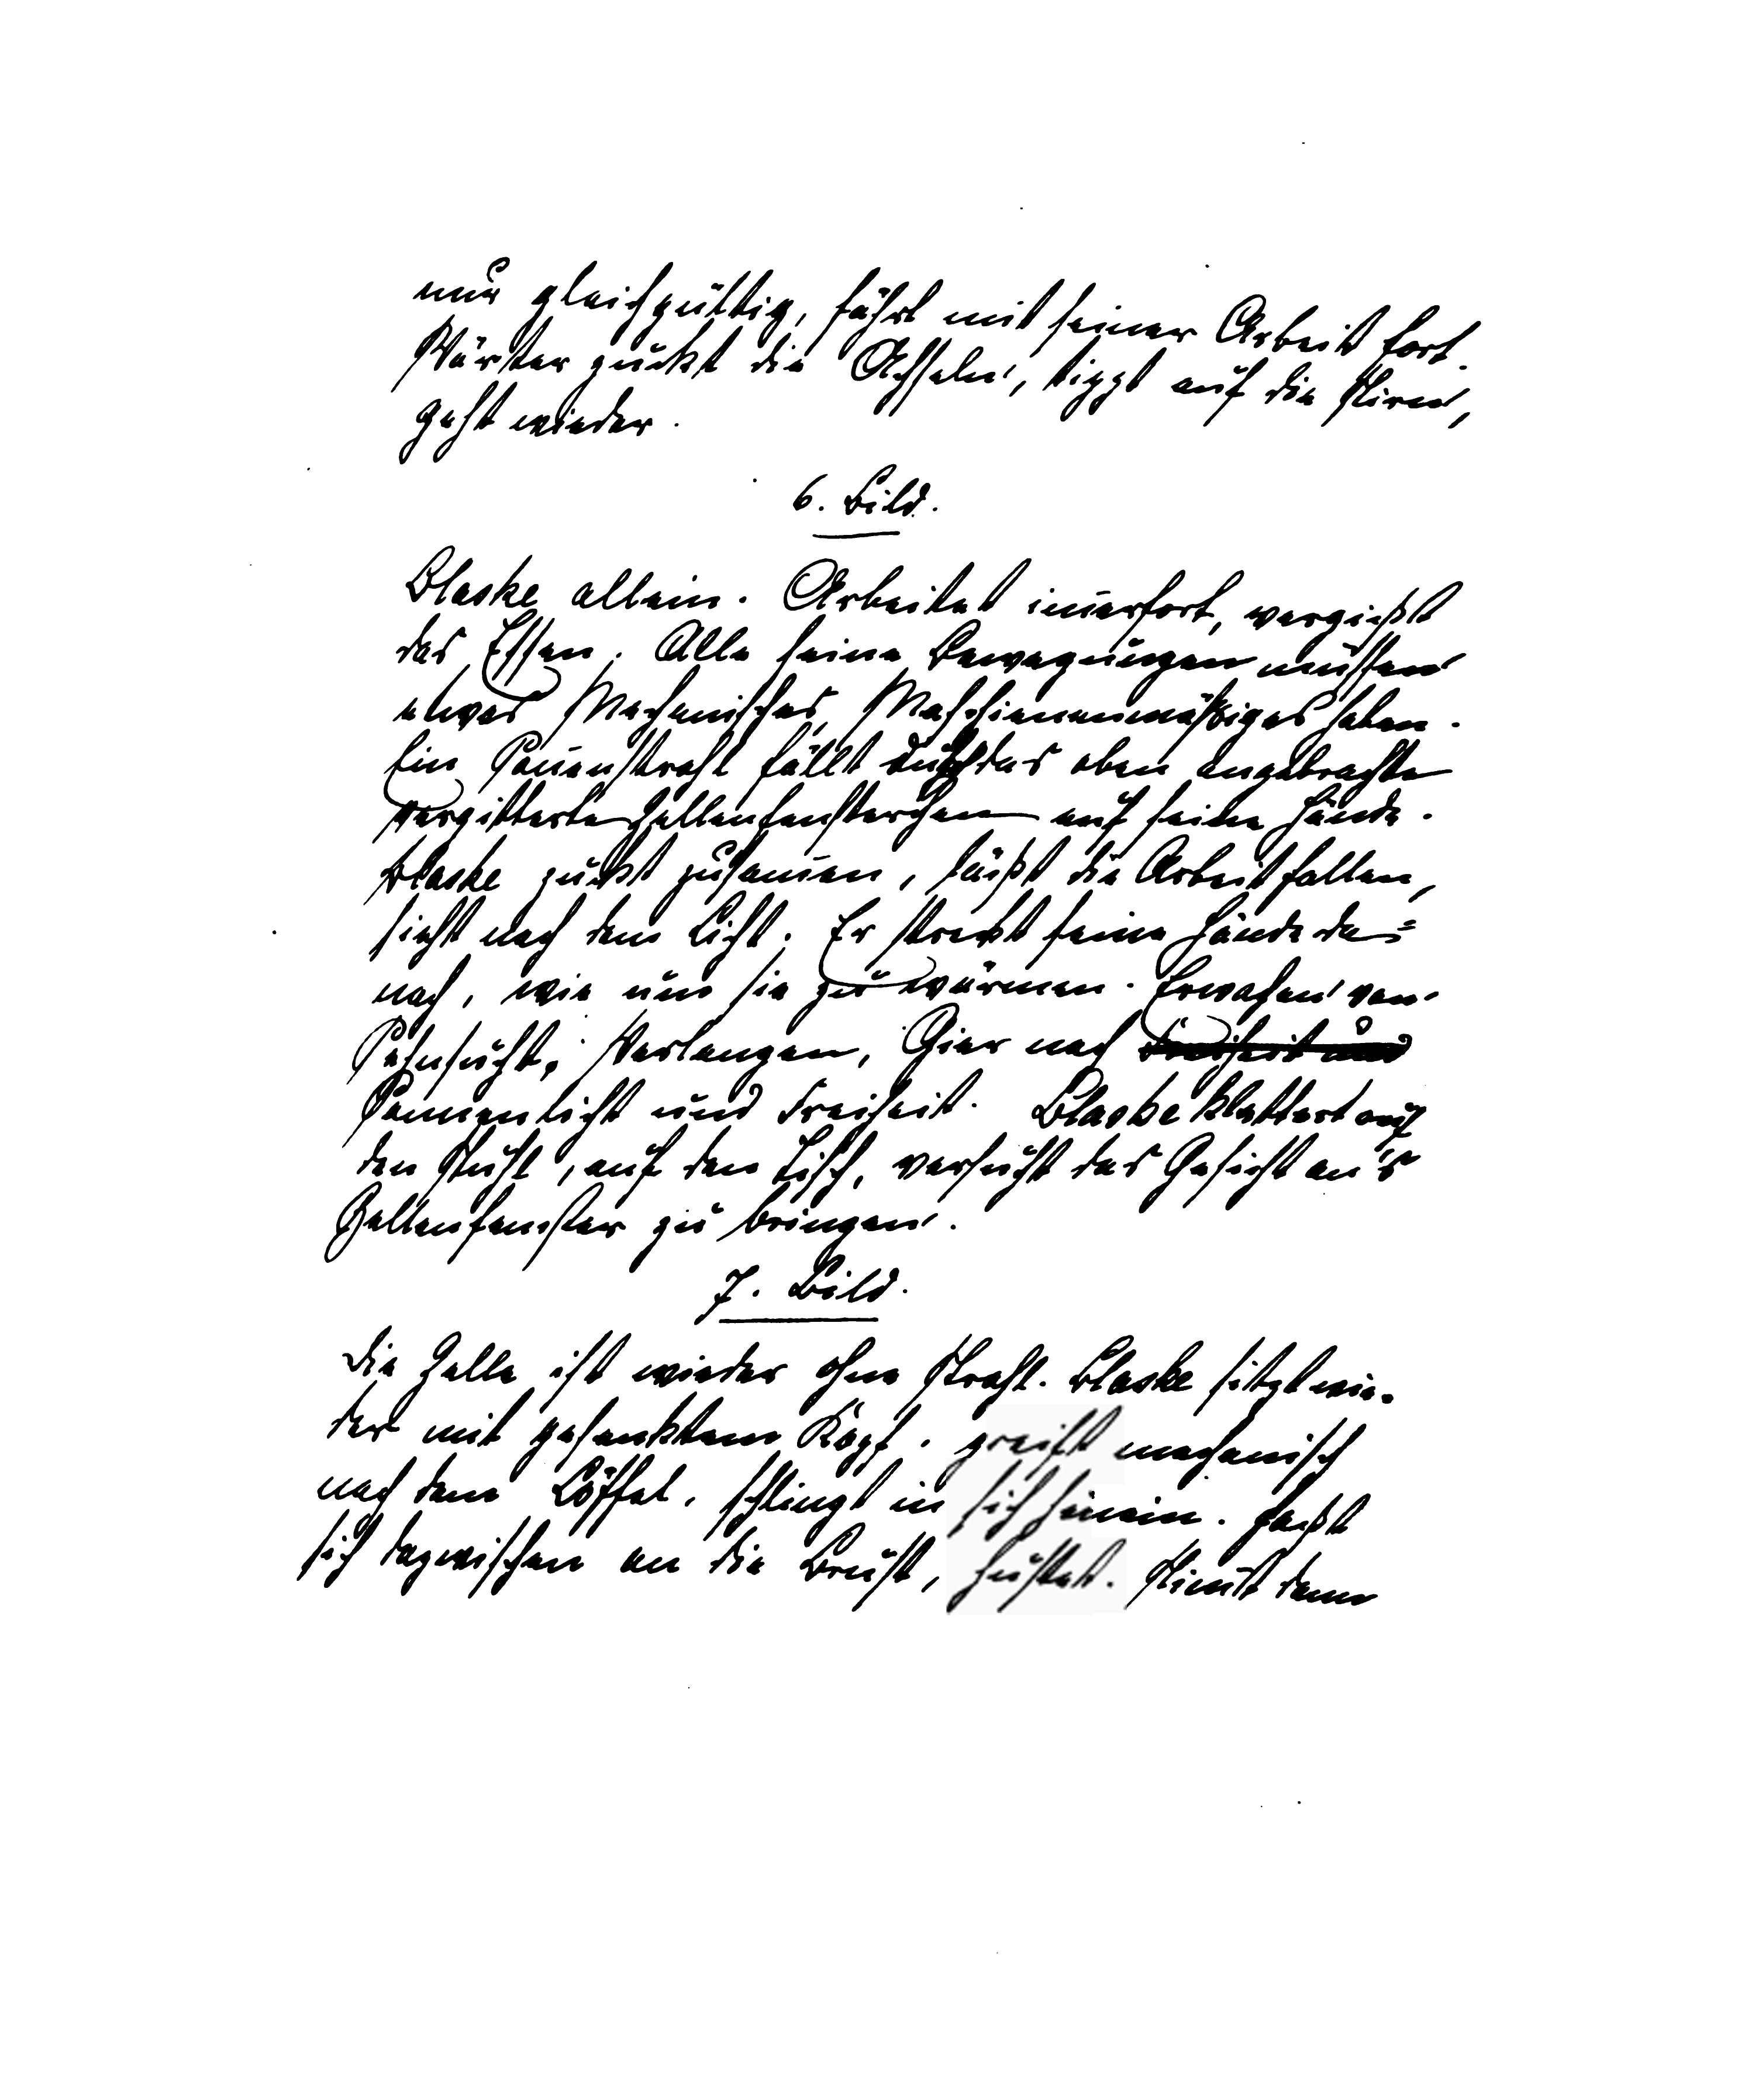 nur gleichgültig, fährt mit seiner Arbeit fort.
Wärter zuckt die Achseln, tippt auf die Stirn,
geht wieder.
6. Bild.
Blaske allein. Arbeitet im̅erfort, vergißt
das Essen. Alle seine Bewegungen müssen
etwas Mechanisches, Maschienenmäßiges haben.
Ein Son̅enstrahl fällt durch das oben angebrachte
vergitterte Zellenfensterchen auf seine Hände.
Blaske zuckt zusam̅en, läßt die Arbeit fallen,
sieht nach dem Licht. Er streckt seine Hände da=
nach, wie um sie zu wärmen. Erwachen von
Sehnsucht, Verlangen, Gier nach Freiheit und
Sonnenlicht und Freiheit. Blaske klettert auf
den Stuhl, auf den Tisch, versucht das Gesicht an's
Zellenfenster zu bringen.
7. Bild.
Die Zelle ist wieder ohne Strahl. Blaske sitzt wie-
der mit gesenktem Kopf. greift mechanisch
nach dem Löffel, schlingt in sich hinein. Faßt
sich dazwischen an die Brust, hustet. Nim̅t dann